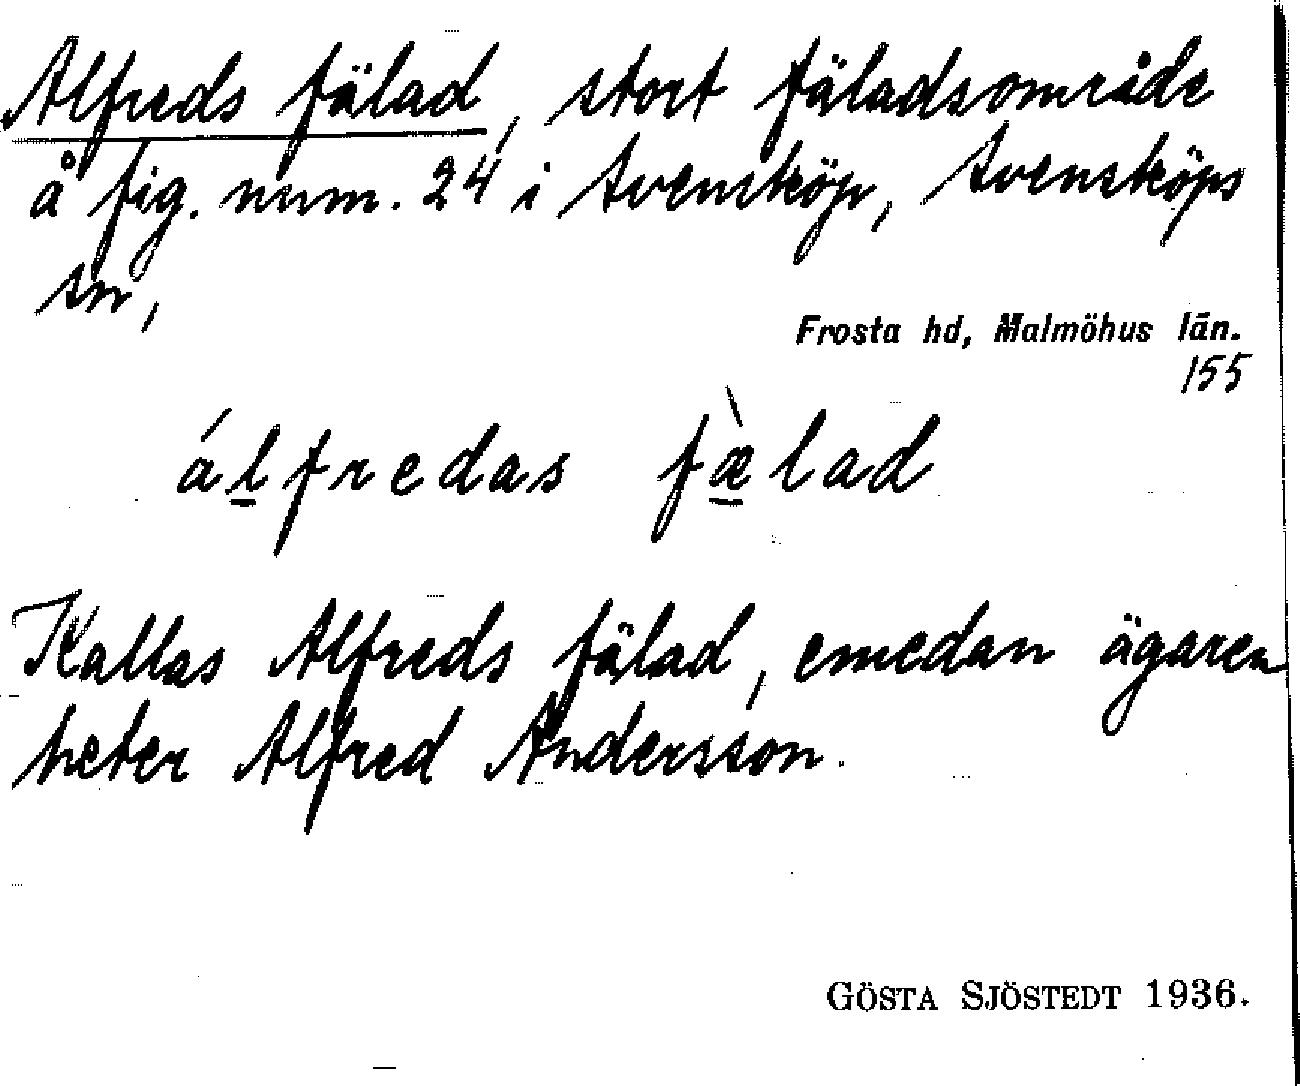 Alfreds fälad, stort fäladsområde
å fig. num. 24 i Svensköp, Svensköps
sn,
Frosta hd, Malmöhus län.
155
álfredas fæ̀lad
Kallas Alfreds fälad, emedan ägaren
heter Alfred Andersson.
GÖSTA SJÖSTEDT 1936.